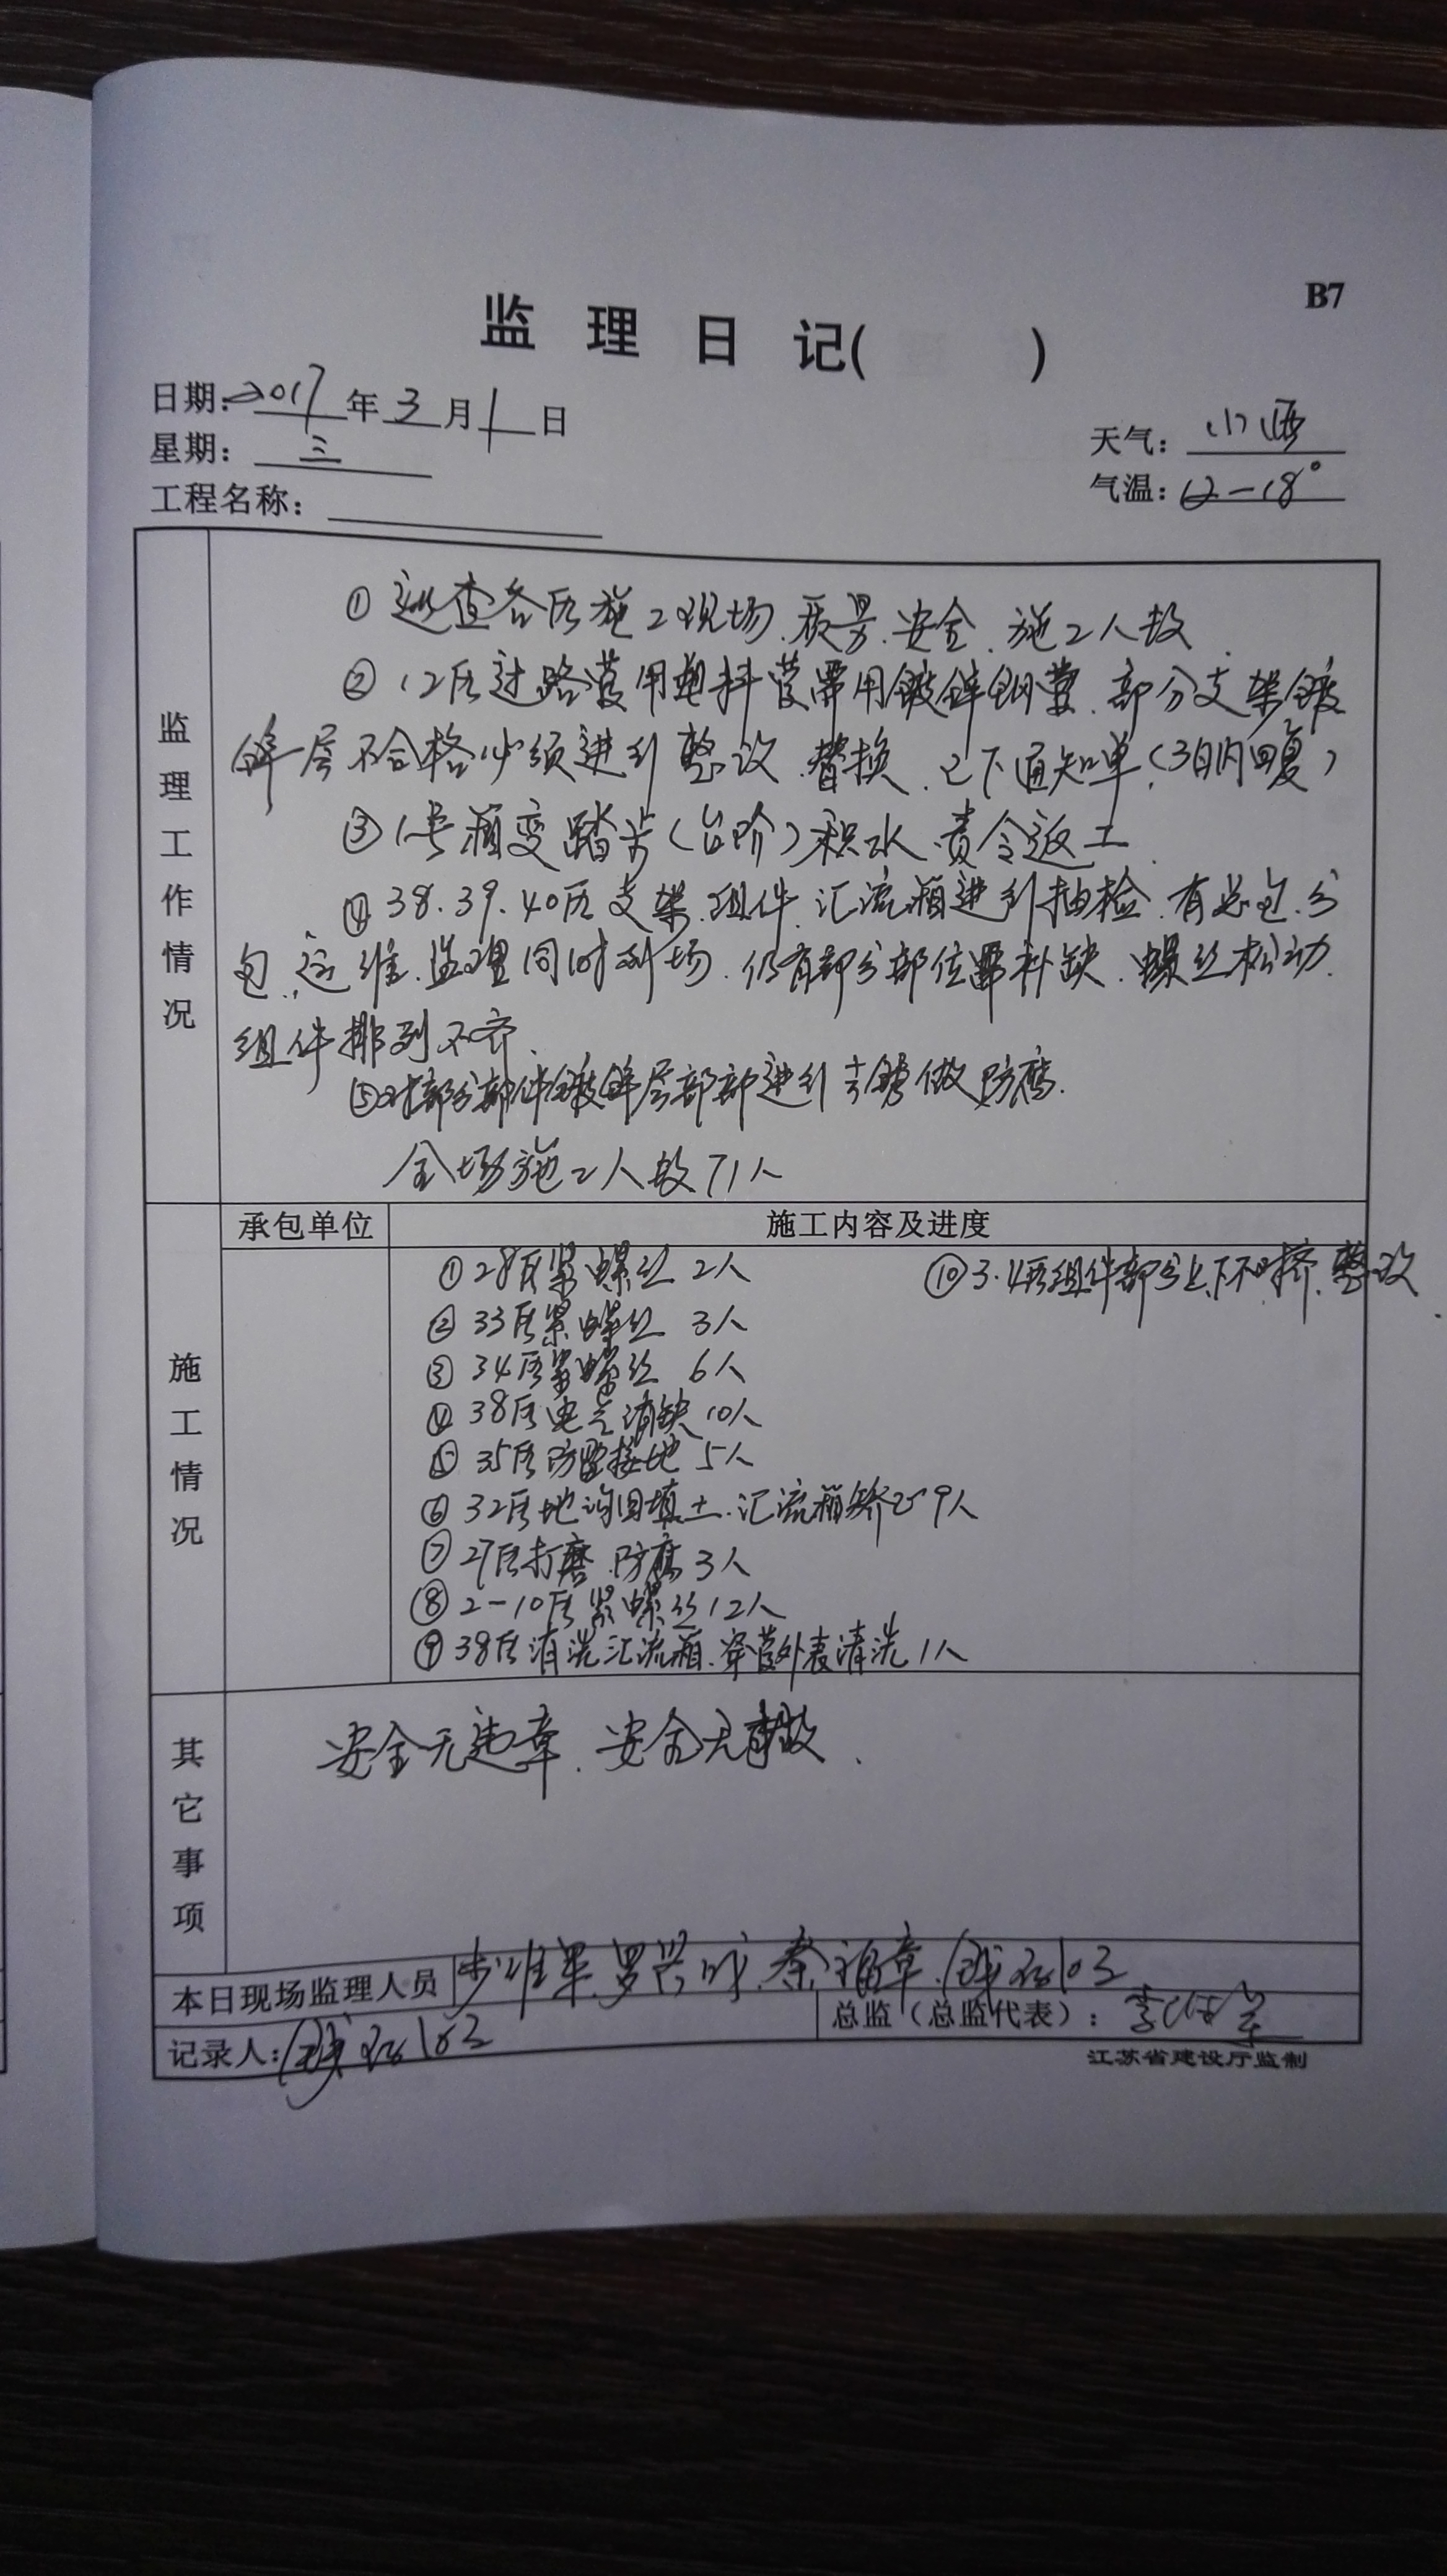 B7
监 理 日 记( )
日期: 2017 年 3 月 1 日
星期: 三
天气: 小雨
工程名称:
气温: 12-18°
监理工作情况
① 巡查各区施工现场、质量、安全、施工人数
② 12区过路管用塑料管需用镀锌钢管、部分支架镀
锌层不合格必须进行整改、替换、已下通知单(3日内回复)
③ 1号箱变踏步(台阶)积水、责令返工
④ 38.39.40区支架、组件、汇流箱进行抽检、有总包、分
包、运维、监理同时到场、仍有部分部位需补缺、螺丝松动、
组件排列不齐、
⑤对部分部件镀锌层部部进行去锈做防腐.
全场施工人数71人
承包单位 施工内容及进度
施工情况
①28区紧螺丝 2人 ⑩3.4区组件部分上下不对挤、整改
② 33区紧螺丝 3人
③ 34区紧螺丝 6人
④ 38区电气消缺10人
⑤ 35区防雷接地 5人
⑥ 32区地沟回填土.汇流箱矫正9人
⑦ 27区打磨.防腐3人
⑧ 2-10区紧螺丝12人
⑨ 38区清洗汇流箱.穿管外表清洗1人
其它事项
安全无违章、安全无事故、
本日现场监理人员 秦福章
记录人: 总监(总监代表):
江苏省建设厅监制